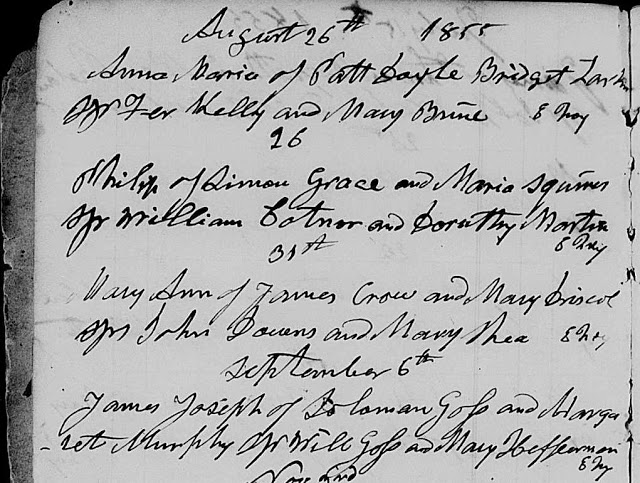 August 26th 1855
Anna Maria of Patt Doyle Bridget
Sprs Kelly and Mary Brine
26
Philip of Simon Grace and Maria Squires
Spr William and Dorothy Martin
31st
Mary Ann of James Crow and Mary Driscol
Sprs John Downs and Mary Shea
September 6th
James Joseph of Soloman Goss and Marga
-ret Murphy Spr Will Goss and Mary Heffernan